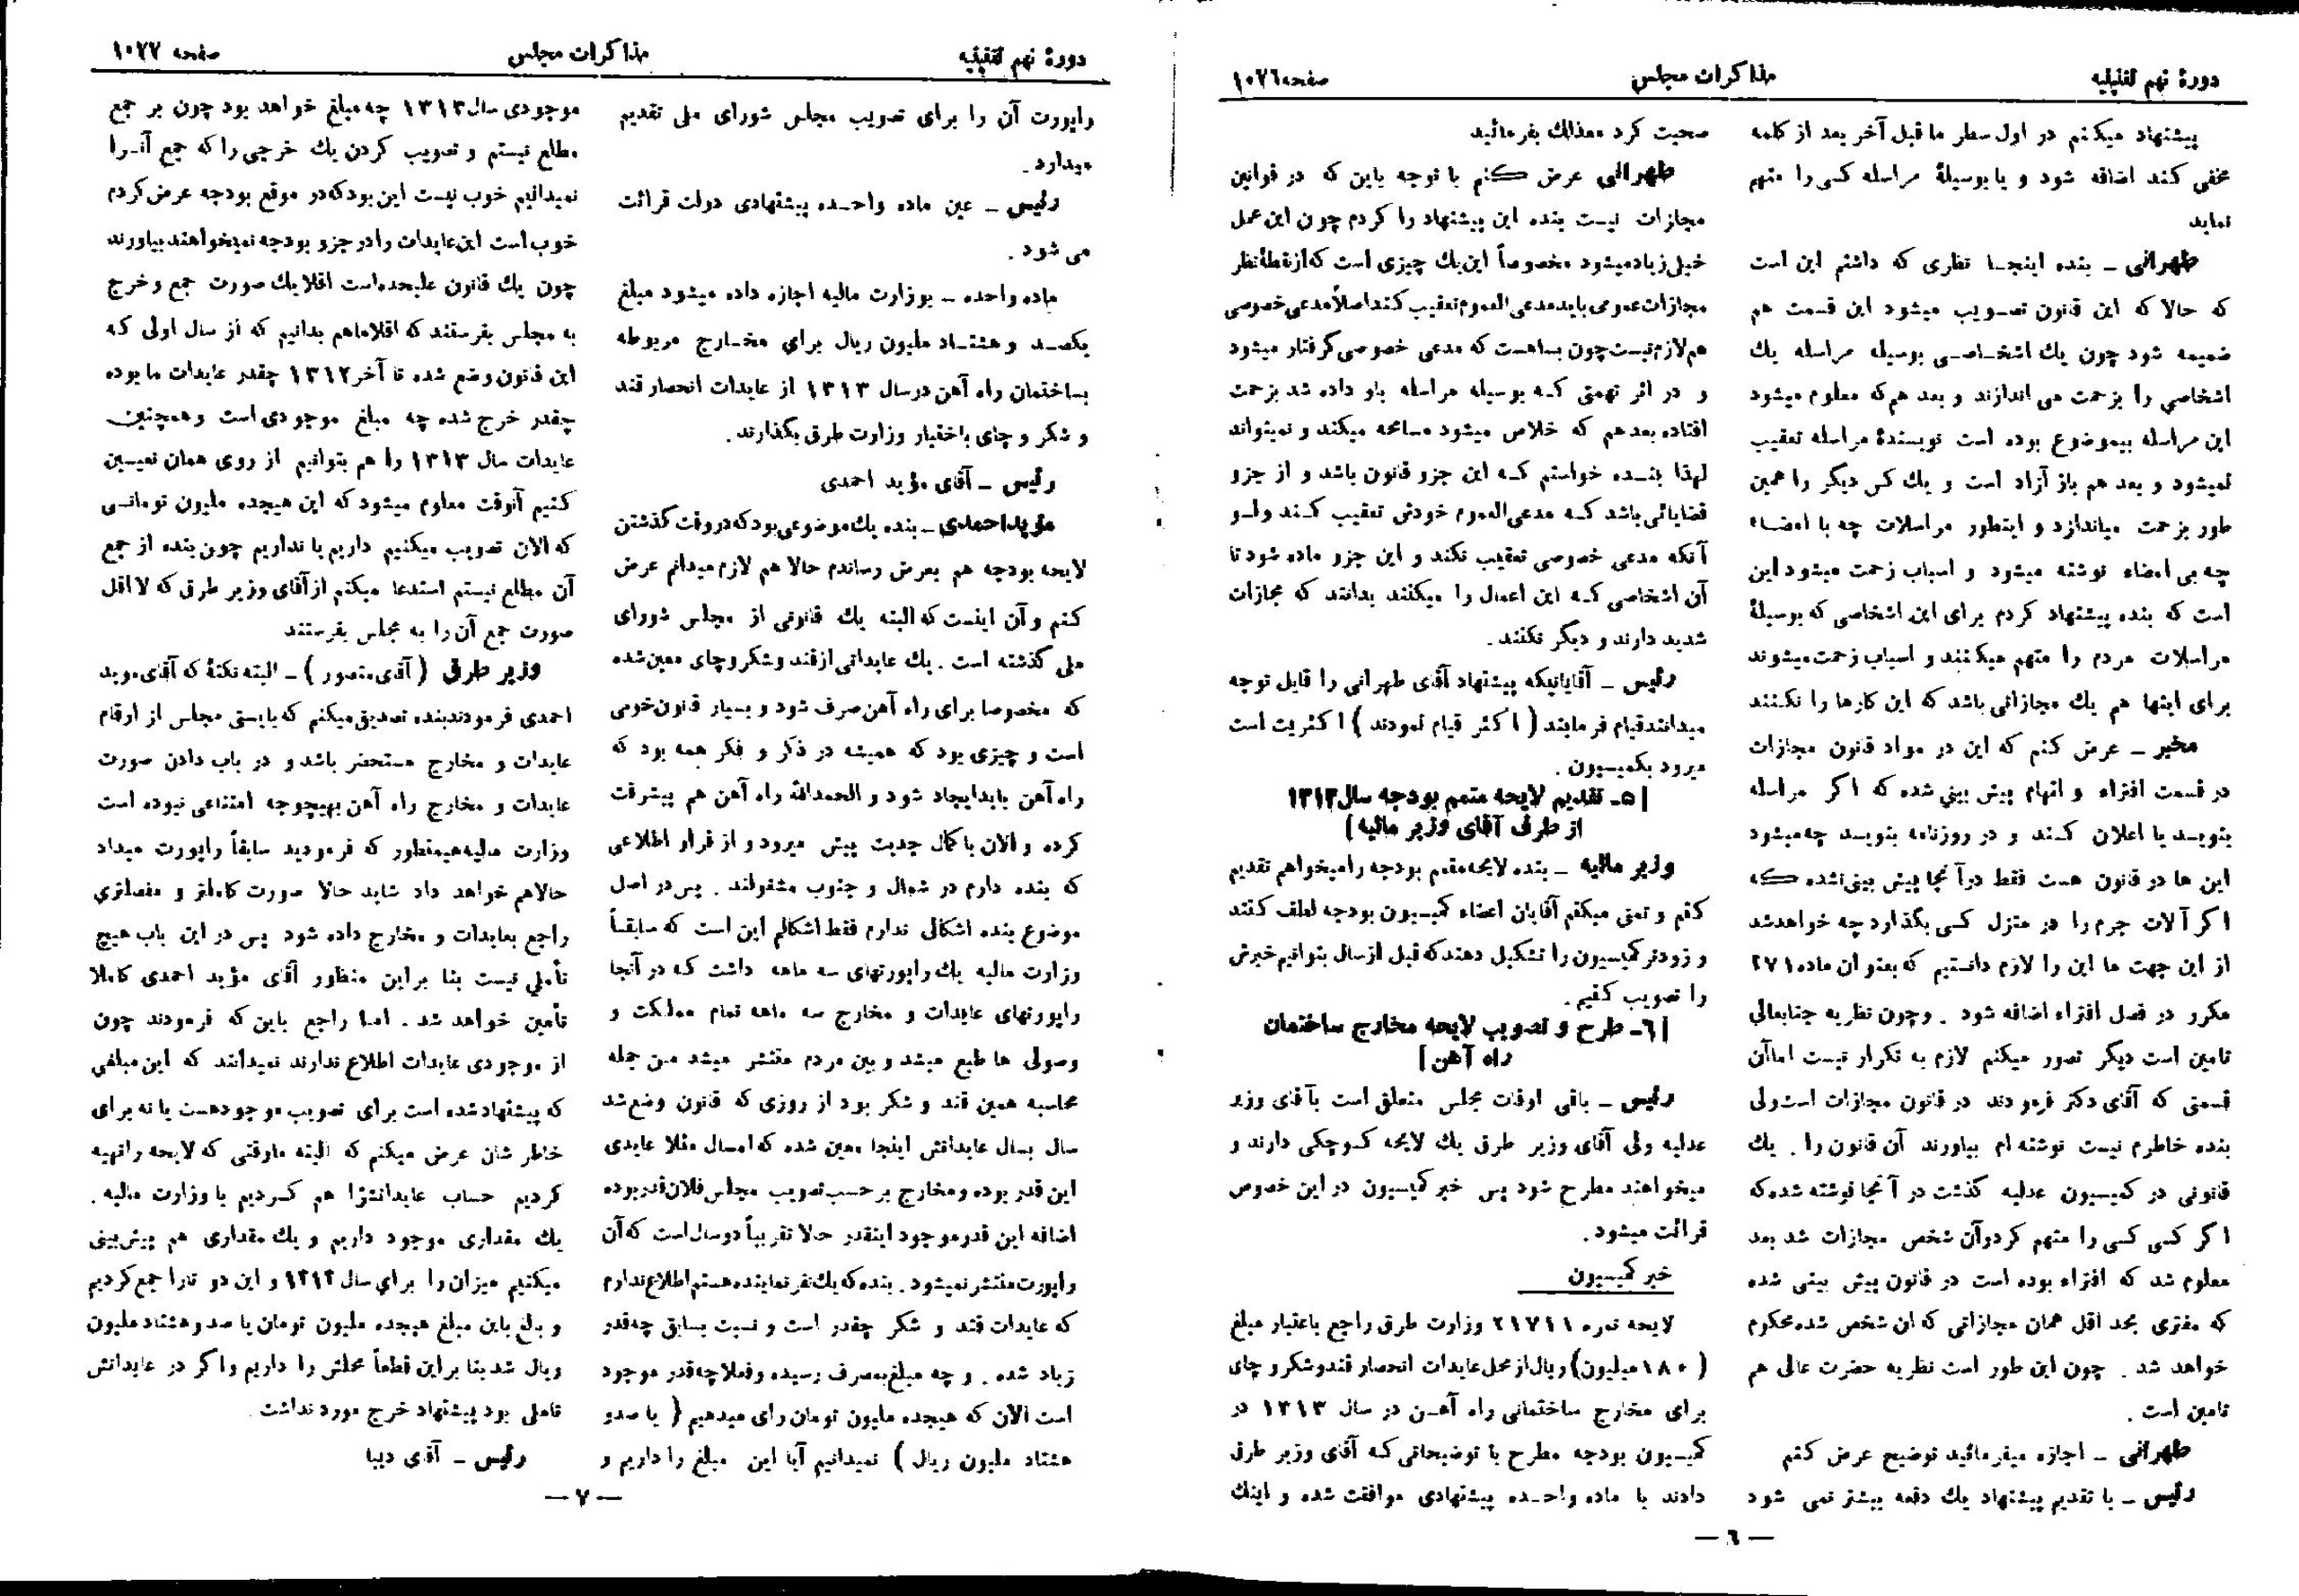 دورهٔ نهم تقنینیه
مذاکرات مجلس
صفحه ۱۰۷۶
پیشنهاد میکنم در اول سطر ما قبل آخر بعد از کلمه
مخفی کند اضافه شود و یا بوسیلهٔ مراسله کسی را متهم
نماید
طهرانی ــ بنده اینجا نظری که داشتم این است
که حالا که این قانون تصویب میشود این قسمت هم
ضمیمه شود چون یك اشخاصی بوسیله مراسله یك
اشخاصی را بزحمت می اندازند و بعد هم که معلوم میشود
این مراسله بیموضوع بوده است نویسندهٔ مراسله تعقیب
نمیشود و بعد هم باز آزاد است و یك کس دیگر را همین
طور بزحمت میاندازد و اینطور مراسلات چه با امضاء
چه بی امضاء نوشته میشود و اسباب زحمت میشود این
است که بنده پیشنهاد کردم برای این اشخاصی که بوسیلهٔ
مراسلات مردم را متهم میکنند و اسباب زحمت میشوند
برای اینها هم یك مجازاتی باشد که این کارها را نکنند
مخبر ــ عرض کنم که این در مواد قانون مجازات
در قسمت افتراء و اتهام پیش بینی شده که اگر مراسله
بنویسد یا اعلان کند و در روزنامه بنویسد چه میشود
این ها در قانون هست فقط در آنجا پیش بینی نشده که
اگر آلات جرم را در منزل کسی بگذارد چه خواهد شد
از این جهت ما این را لازم دانستیم که بعنوان ماده ۲۷۱
مکرر در فصل افتراء اضافه شود . و چون نظریه جنابعالی
تامین است دیگر تصور میکنم لازم به تکرار نیست اما آن
قسمتی که آقای دکتر فرمودند در قانون مجازات است ولی
بنده خاطرم نیست نوشته ام بیاورند آن قانون را . یك
قانونی در کمیسیون عدلیه گذشت در آنجا نوشته شده که
اگر کسی کسی را متهم کرد و آن شخص مجازات شد بعد
معلوم شد که افتراء بوده است در قانون پیش بینی شده
که مفتری بحد اقل همان مجازاتی که ان شخص شده محکوم
خواهد شد . چون این طور است نظریه حضرت عالی هم
تامین است .
طهرانی ــ اجازه میفرمائید توضیح عرض کنم
رئیس ــ با تقدیم پیشنهاد یك دفعه بیشتر نمی شود
صحبت کرد معذلك بفرمائید
طهرانی عرض کنم با توجه باین که در قوانین
مجازات نیست بنده این پیشنهاد را کردم چون این عمل
خیلی زیاد میشود مخصوصاً این یك چیزی است که از نقطهٔ نظر
مجازات عمومی باید مدعی العموم تعقیب کند اصلاً مدعی خصوصی
هم لازم نیست چون بسا هست که مدعی خصوصی گرفتار میشود
و در اثر تهمتی که بوسیله مراسله باو داده شد بزحمت
افتاده بعد هم که خلاص میشود مسامحه میکند و نمیتواند
لهذا بنده خواستم که این جزو قانون باشد و از جزو
قضایائی باشد که مدعی العموم خودش تعقیب کند ولو
آنکه مدعی خصوصی تعقیب نکند و این جزو ماده شود تا
آن اشخاصی که این اعمال را میکنند بدانند که مجازات
شدید دارند و دیگر نکنند .
رئیس ــ آقایانیکه پیشنهاد آقای طهرانی را قابل توجه
میدانند قیام فرمایند ( اکثر قیام نمودند ) اکثریت است
میرود بکمیسیون .
[ ٥ـ تقدیم لایحه متمم بودجه سال ۱۳۱۳
از طرف آقای وزیر مالیه ]
وزیر مالیه ــ بنده لایحه متمم بودجه را میخواهم تقدیم
کنم و تمنی میکنم آقایان اعضاء کمیسیون بودجه لطف کنند
و زودتر کمیسیون را تشکیل دهند که قبل از سال بتوانیم خبرش
را تصویب کنیم .
[ ٦ـ طرح و تصویب لایحه مخارج ساختمان
راه آهن ]
رئیس ــ باقی اوقات مجلس متعلق است بآقای وزیر
عدلیه ولی آقای وزیر طرق یك لایحه کوچکی دارند و
میخواهند مطرح شود پس خبر کمیسیون در این خصوص
قرائت میشود .
خبر کمیسیون
لایحه نمره ۲۱۷۱۱ وزارت طرق راجع باعتبار مبلغ
( ۱۸۰ میلیون ) ریال از محل عایدات انحصار قند و شکر و چای
برای مخارج ساختمانی راه آهن در سال ۱۳۱۳ در
کمیسیون بودجه مطرح با توضیحاتی که آقای وزیر طرق
دادند با ماده واحده پیشنهادی موافقت شده و اینك
ــ ٦ ــ
دورهٔ نهم تقنینیه
مذاکرات مجلس
صفحه ۱۰۷۷
راپورت آن را برای تصویب مجلس شورای ملی تقدیم
میدارد .
رئیس ــ عین ماده واحده پیشنهادی دولت قرائت
می شود .
ماده واحده ــ بوزارت مالیه اجازه داده میشود مبلغ
یکصد و هشتاد ملیون ریال برای مخارج مربوطه
بساختمان راه آهن در سال ۱۳۱۳ از عایدات انحصار قند
و شکر و چای باختیار وزارت طرق بگذارند .
رئیس ــ آقای مؤید احمدی
مؤید احمدی ــ بنده یك موضوعی بود که در وقت گذشتن
لایحه بودجه هم بعرض رساندم حالا هم لازم میدانم عرض
کنم و آن اینست که البته یك قانونی از مجلس شورای
ملی گذشته است . یك عایداتی از قند و شکر و چای معین شده
که مخصوصا برای راه آهن صرف شود و بسیار قانون خوبی
است و چیزی بود که همیشه در ذکر و فکر همه بود که
راه آهن باید ایجاد شود و الحمدالله راه آهن هم پیشرفت
کرده و الان با کمال جدیت پیش میرود و از قرار اطلاعی
که بنده دارم در شمال و جنوب مشغولند . پس در اصل
موضوع بنده اشکالی ندارم فقط اشکالم این است که سابقاً
وزارت مالیه یك راپورتهای سه ماهه داشت که در آنجا
راپورتهای عایدات و مخارج سه ماهه تمام مملکت و
وصولی ها طبع میشد و بین مردم منتشر میشد من جمله
محاسبه همین قند و شکر بود از روزی که قانون وضع شد
سال بسال عایداتش اینجا معین شده که امسال مثلا عایدی
این قدر بوده و مخارج بر حسب تصویب مجلس فلان قدر بوده
اضافه این قدر موجود اینقدر حالا تقریباً دو سال است که آن
راپورت منتشر نمیشود . بنده که یك نفر نماینده هستم اطلاع ندارم
که عایدات قند و شکر چقدر است و نسبت بسابق چه قدر
زیاد شده . و چه مبلغ بمصرف رسیده و فعلا چه قدر موجود
است الان که هیجده ملیون تومان رای میدهیم ( یا صد و
هشتاد ملیون ریال ) نمیدانیم آیا این مبلغ را داریم و
موجودی سال ۱۳۱۳ چه مبلغ خواهد بود چون بر جمع
مطلع نیستم و تصویب کردن یك خرجی را که جمع آنرا
نمیدانیم خوب نیست این بود که در موقع بودجه عرض کردم
خوب است این عایدات را در جزو بودجه نمیخواهند بیاورند
چون یك قانون علیحده است اقلا یك صورت جمع و خرج
به مجلس بفرستند که اقلا ما هم بدانیم که از سال اولی که
این قانون وضع شده تا آخر ۱۳۱۲ چقدر عایدات ما بوده
چقدر خرج شده چه مبلغ موجودی است و همچنین
عایدات سال ۱۳۱۳ را هم بتوانیم از روی همان تعیین
کنیم آنوقت معلوم میشود که این هیجده ملیون تومانی
که الان تصویب میکنیم داریم یا نداریم چون بنده از جمع
آن مطلع نیستم استدعا میکنم از آقای وزیر طرق که لا اقل
صورت جمع آن را به مجلس بفرستند
وزیر طرق ( آقای منصور ) ــ البته نکتهٔ که آقای موید
احمدی فرمودند بنده تصدیق میکنم که بایستی مجلس از ارقام
عایدات و مخارج مستحضر باشد و در باب دادن صورت
عایدات و مخارج راه آهن بهیچوجه امتناعی نبوده است
وزارت مالیه همینطور که فرمودید سابقاً راپورت میداد
حالا هم خواهد داد شاید حالا صورت کاملتر و مفصلتری
راجع بعایدات و مخارج داده شود پس در این باب هیچ
تأملی نیست بنا بر این منظور آقای مؤید احمدی کاملا
تأمین خواهد شد . اما راجع باین که فرمودند چون
از موجودی عایدات اطلاع ندارند نمیدانند که این مبلغی
که پیشنهاد شده است برای تصویب موجود هست یا نه برای
خاطر شان عرض میکنم که البته ما وقتی که لایحه را تهیه
کردیم حساب عایداتش را هم کردیم با وزارت مالیه .
یك مقداری موجود داریم و یك مقداری هم پیش بینی
میکنیم میزان را برای سال ۱۳۱۳ و این دو تا را جمع کردیم
و بالغ باین مبلغ هیجده ملیون تومان یا صد و هشتاد ملیون
ریال شد بنا بر این قطعاً محلش را داریم و اگر در عایداتش
تاملی بود پیشنهاد خرج مورد نداشت .
رئیس ــ آقای دیبا
ــ ۷ ــ